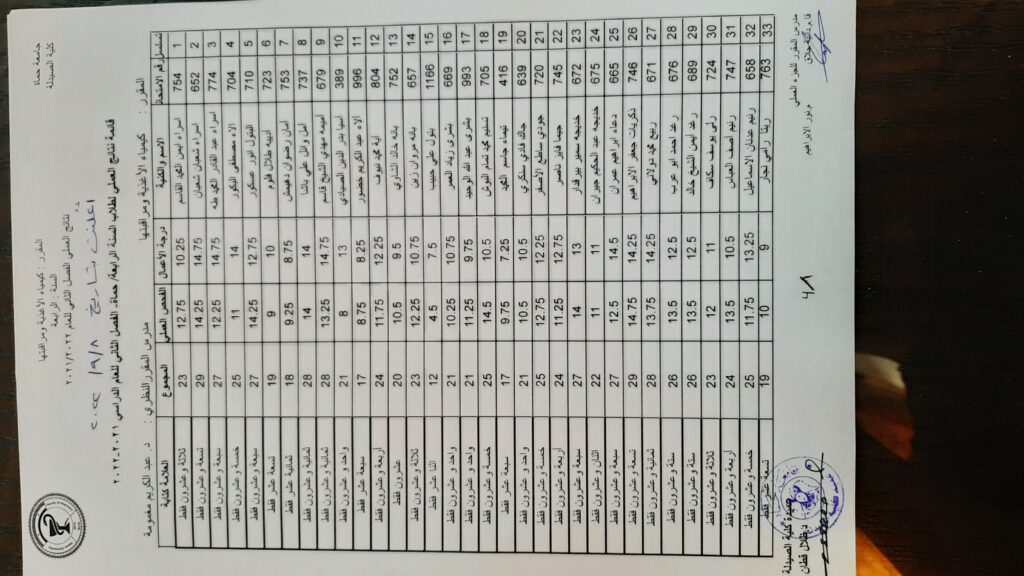 جامعة حماة
كلية الصيدلة
المقرر : كيمياء الأغذية ومراقبتها
السنة : الرابعة
نتائج العملي الفصل الثاني للعام ٢٠٢١/٢٠٢٢
اعلنت بتاريخ ٢٠٢٢/٩/٨
قائمة نتائج العملي لطلاب السنة الرابعة/ حماة، الفصل الثاني للعام الدراسي ٢٠٢١-٢٠٢٢
المقرر : كيمياء الأغذية ومراقبتها مدرس المقرر النظري : د. عبد الكريم
تسلسل رقم الامتحان الاسم والكنية درجة الأعمال الفحص العملي المجموع العلامة كتابة
1 754 اسراء انس القاسم 10.25 12.75 23 ثلاثة و عشرون فقط
2 652 اسراء شعبان شعبان 14.75 14.25 29 تسعة و عشرون فقط
3 774 اسراء عبد القادر طه 14.75 12.25 27 سبعة و عشرون فقط
4 704 الاء مصطفى البكور 14 11 25 خمسة و عشرون فقط
5 710 البتول انور 12.75 14.25 27 سبعة و عشرون فقط
6 723 اليه خلاف قلوم 10 9 19 تسعة و عشر فقط
7 753 امان رضوان 8.75 9.25 18 ثمانية و عشر فقط
8 737 امل وائل علي باشا 14 14 28 ثمانية و عشرون فقط
9 679 اميمه مهدي الشيخ قاسم 14.75 13.25 28 ثمانية و عشرون فقط
10 389 اسيا بدر الدين الصيادي 13 8 21 واحد و عشرون فقط
11 996 الاء عبد الكريم خضور 8.25 8.75 17 سبعة عشر فقط
12 804 اية محمد 12.25 11.75 24 أربعة و عشرون فقط
13 752 بانه خالد 9.5 10.5 20 عشرون فقط
14 657 بانه مروان زين 10.75 12.25 23 ثلاثة و عشرون فقط
15 1166 بتول علي حبيب 7.5 4.5 12 اثنا عشر فقط
16 669 بشرى زياد العمر 10.75 10.25 21 واحد و عشرون فقط
17 993 بشرى عبد الله الوحيد 9.75 11.25 21 واحد و عشرون فقط
18 705 تسنيم محمد تمام البوش 10.5 14.5 25 خمسة و عشرون فقط
19 416 تيماء جاسم 7.25 9.75 17 سبعة عشر فقط
20 639 جاك فادي سنكري 10.5 10.5 21 واحد و عشرون فقط
21 720 جودي ساطع الأصفر 12.25 12.75 25 خمسة و عشرون فقط
22 745 جيما فايز ناصر 12.75 11.25 24 أربعة و عشرون فقط
23 672 خديجه سمير بيرقدار 13 14 27 سبعة و عشرون فقط
24 675 خديجه عبد الحكيم جيران 11 11 22 اثنان و عشرون فقط
25 665 دعاء ابراهيم عمران 14.5 12.5 27 سبعة و عشرون فقط
26 746 ذكريات جعفر الابراهيم 14.25 14.75 29 تسعة و عشرون فقط
27 671 ربيع محمد دولاتي 14.25 13.75 28 ثمانية و عشرون فقط
28 676 رغد احمد ابو عرب 12.5 13.5 26 ستة و عشرون فقط
29 689 رغد انيس الشيخ خالد 12.5 13.5 26 ستة و عشرون فقط
30 724 ربى يوسف سكاف 11 12 23 ثلاثة و عشرون فقط
31 747 رنيم اصف العباس 10.5 13.5 24 أربعة و عشرون فقط
32 658 رنيم عدنان الاسماعيل 13.25 11.75 25 خمسة و عشرون فقط
33 763 ريتا رامي نجار 9 10 19 تسعة عشر فقط
مدرس المقرر للجزء العملي عميدة كلية الصيدلة
م.نور الابراهيم د.طلال قطان